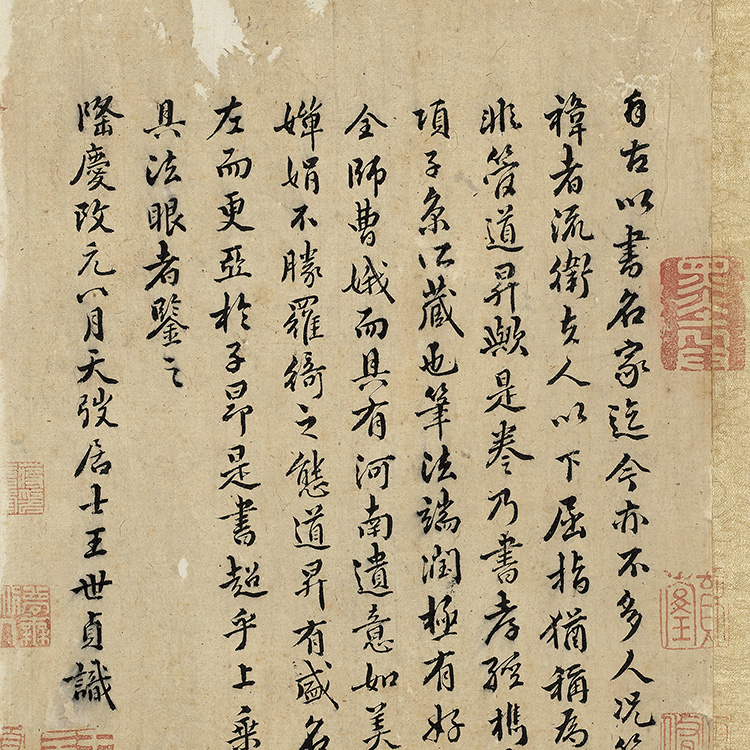 自古以書名家迄今亦不多人况
褘者流衛夫人以下屈指猶稱為
非管道昇歟是卷乃書孝經
項子京所藏也筆法端潤極有好
全師曹娥而具有河南遺意如美
嬋娟不勝羅綺之態道昇有盛名
左而更亞於子昂是書超乎上乘
具法眼者鑒之
隆慶改元八月天弢居士王世貞識